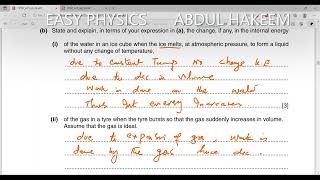 EASY PHYSICS ABDUL HAKEEM
(b) State and explain, in terms of your expression in (a), the change, if any, in the internal energy
(i) of the water in an ice cube when the ice melts, at atmospheric pressure, to form a liquid
without any change of temperature,
due to constant Temp No change KE
due to dec in volume
Work is done on the water
Thus Int energy increases
[3]
(ii) of the gas in a tyre when the tyre bursts so that the gas suddenly increases in volume.
Assume that the gas is ideal.
due to expansion of gas, work is
done by the gas hence dec.